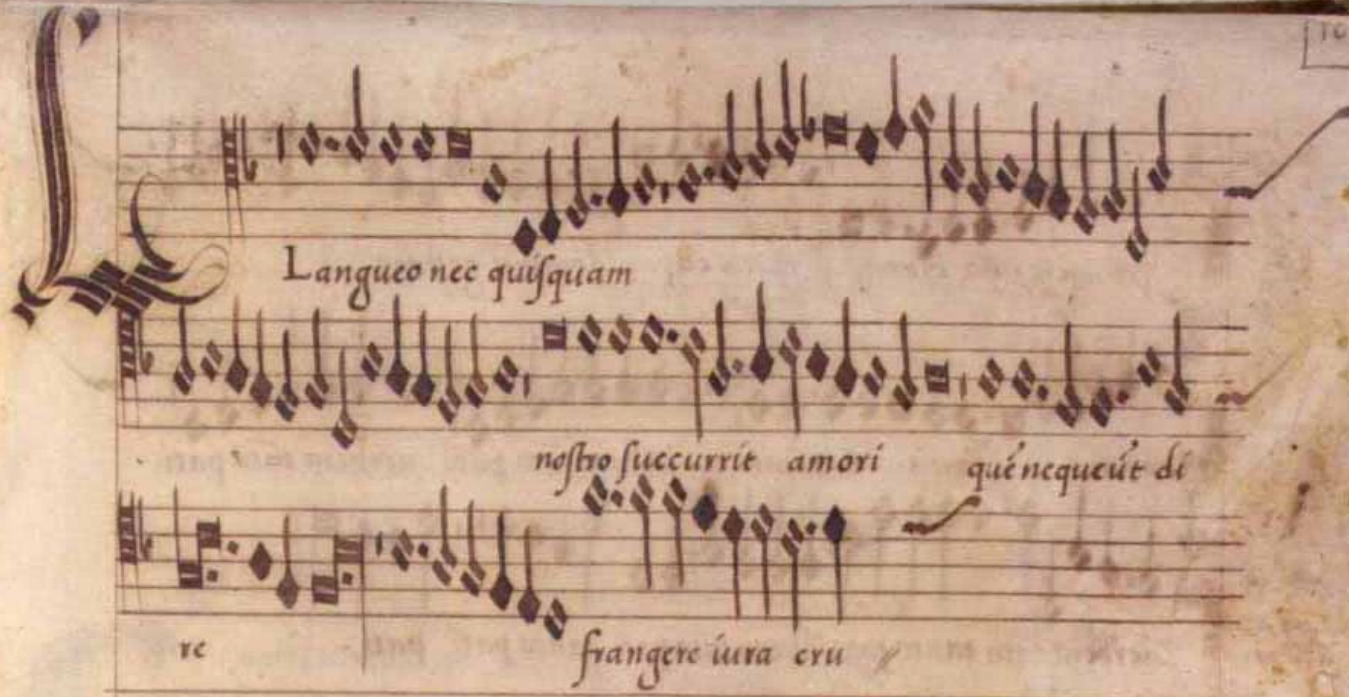 Langueo nec quiſquam
noſtro ſuccurrit amori quē nequeūt di
re frangere iura cru